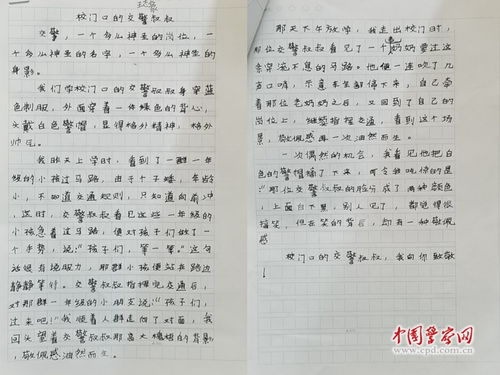 校门口的交警叔叔
交警，一个多么神圣的岗位，一
个多么神圣的名字，一个多么神圣的
身影。
我们学校门口的交警叔叔身穿蓝
色制服，外面穿着一件绿色的背心，
头戴白色警帽，显得格外精神，格外
帅气。
我昨天上学时，看到了一群一年
级的小孩过马路，由于个子矮，年龄
小，不知道交通规则，只知道向前冲
，这时，交警叔叔看见这些一年级的
小孩急着过马路，便对孩子们做了一
个手势，说："孩子们，等一等。"这句
话很有说服力，那群小孩便站在路边
静静等待。交警叔叔指挥完交通后，
对那群一年级的小朋友说："孩子们，
过来吧！"我顺着人群走向了对面，我
回头望着交警叔叔那高大橄榄的背影
，敬佩感油然而生。
那天下午放学，我走出校门时，
那位交警叔叔看见了一个老奶奶要过这
条穿流不息的马路。他便一连吹了几
声口哨，示意车全都停下来，自己牵
着那位老奶奶过去，又回到了自己的
岗位上，继续指挥交通，看到这个场
景，敬佩感再一次油然而生。
一次偶然的机会，我看见他把白
色的警帽摘了下来，而令我吃惊的是
：那位交警叔叔的脸分成了两种颜色
，上面白下黑，别人见了，都觉得很
搞笑，但在笑的背后，却有一种敬佩
感
校门口的交警叔叔，我向你致敬
！
中国警察网
www.cpd.com.cn